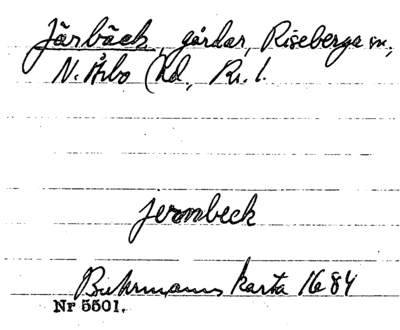 Järbäck, gårdar, Riseberga sn,
N. Åsbo hd, Kr. l.
jermbeck
Buhrmanns karta 1684
Nr 5501.